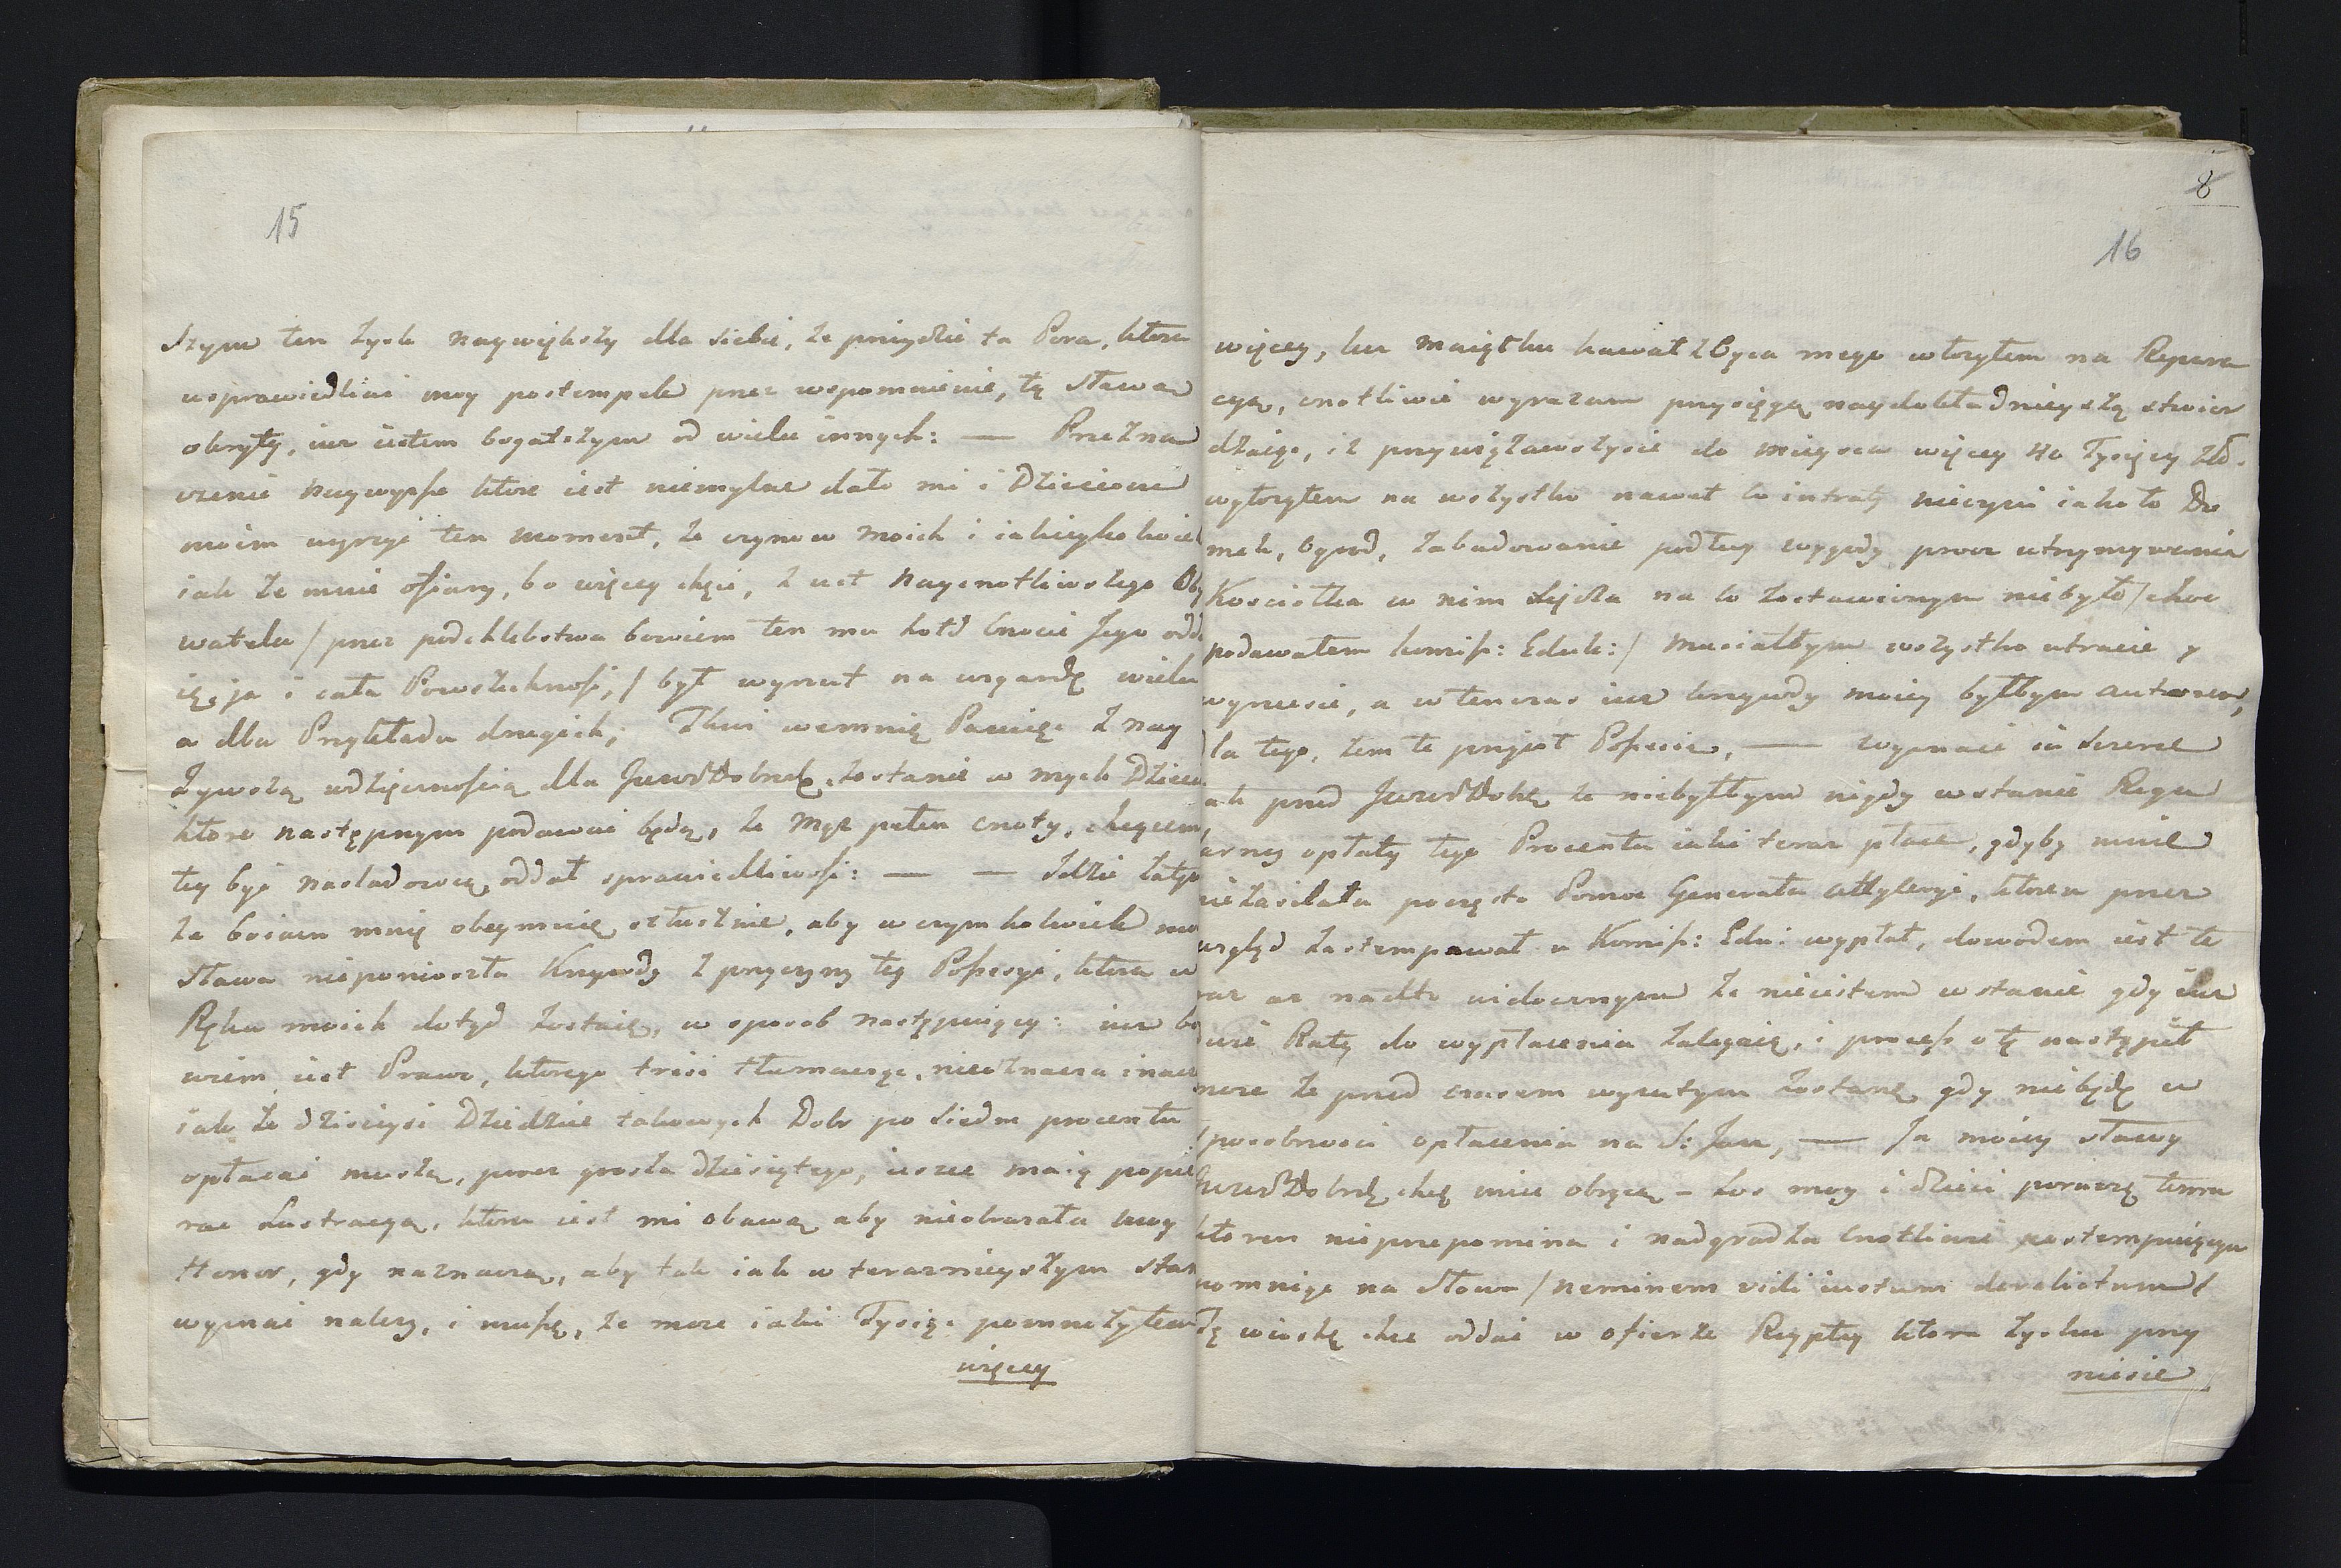 15
szym ten zysk naywiększy dla siebie, że przydzie ta Pora, która
usprawiedliwi moy postempek przez wspomnienie, tą Sławą
okryty, iuż iestem bogatszym od wielu innych: — Przezna
czenie naywyższe które iest niemylne dało mi i Dzieciom
moim uyrzyć ten moment, że czynow moich i iakieykolwiek
iak ze mnie ofiary, bo więcey chęci, z ust naycnotliwszego Oby
watela / przez podchlebstwa bowiem ten ma hołd Cnocie Jego odda
ię, ja i cała Powszechność, / był wyrzut na wzgardę wielu
a dla Przykładu drugich; Tkwi wemnię Pamięć z nay
żywszą wdzięcznością dla JWWDobrodz. zostanie w mych Dzieci
które następnym podawać będą, że Mąż pełen cnoty, chcącemu
tey być nasladowcą, oddał sprawiedliwość: — —
że boiazn mnię obeymuię słusznie, aby w czymkolwiek mo
Sława nieponiosła Krzywdy z przyczyny tey Possesyi, która w
Ręku moich dotąd zostaie, w sposob następuiący: iuż bo
wiem iest Prawo, którego treść tłumacząc, nieoznacza inacz
iak że dzisieysi Dziedzice takowych Dobr po siedm procentu
opłacać muszą, procz grosza dziesiątego, ieszcze maią popie
rać Lustracyą, która iest mi obawą aby nieobrażała moy
Honor, gdy naznaczą, aby tak iak w teraznieyszym stan
wyznać należy, i muszę, że może iaki Tysiąc pomnożyłem
więcey
8
16
więcey, lecz maiątku kawał z Oyca mego włożyłem na Repera
cyą, cnotliwie wyrażam przysięgą naydokładnieyszą stwier
dzaiąc, iż przywiązawszysię do mieysca więcey 40 Tysięcy Zł.
wyłożyłem na wszystko nawet co intraty nieczyni iako to Do
mek, Ogrod, Zabudowanie podług wygody procz utrzymywania
Kosciołka w nim Xiędza na co zostawionym niebyło / choc
podawałem komiss: Eduk: / Musiałbym wszystko utracić y
wynieść, a wtenczas iuż krzywdy moiey byłbym autorem,
dla tego, tem te przyiął Possesie, — wyznaie iu szczerze
ak przed JWWDobrą że niebyłbym nigdy wstanie Regu
arney opłaty tego Procentu iaki teraz płacę, gdyby mnie
niezasilała poczęsto Pomoc Generała Attyleryi, która przez
wzgląd zastempował u Komiss: Edu: wypłat, dowodem iest te
raz aż nadto widocznym że nieiestem wstanie gdy iuż
dwie Raty do wypłacenia zalegaią, i process otę nastąpił
może że przed czasem wyzutym zostanę gdy niebędę w
sposobnosci opłacenia na S: Jan, — Ja moiey sławy
JWWDobrdz. chcę mnie obrące - Los moy i dzieci poruczę temu
który nieprzepomina i nadgradza Cnotliwie postempuiącym
pomniąc na Słowa / neminem vidi iustum derelictum /
Tę wioskę chcę oddać w ofierze Rzypltey która zysku przy
niesie